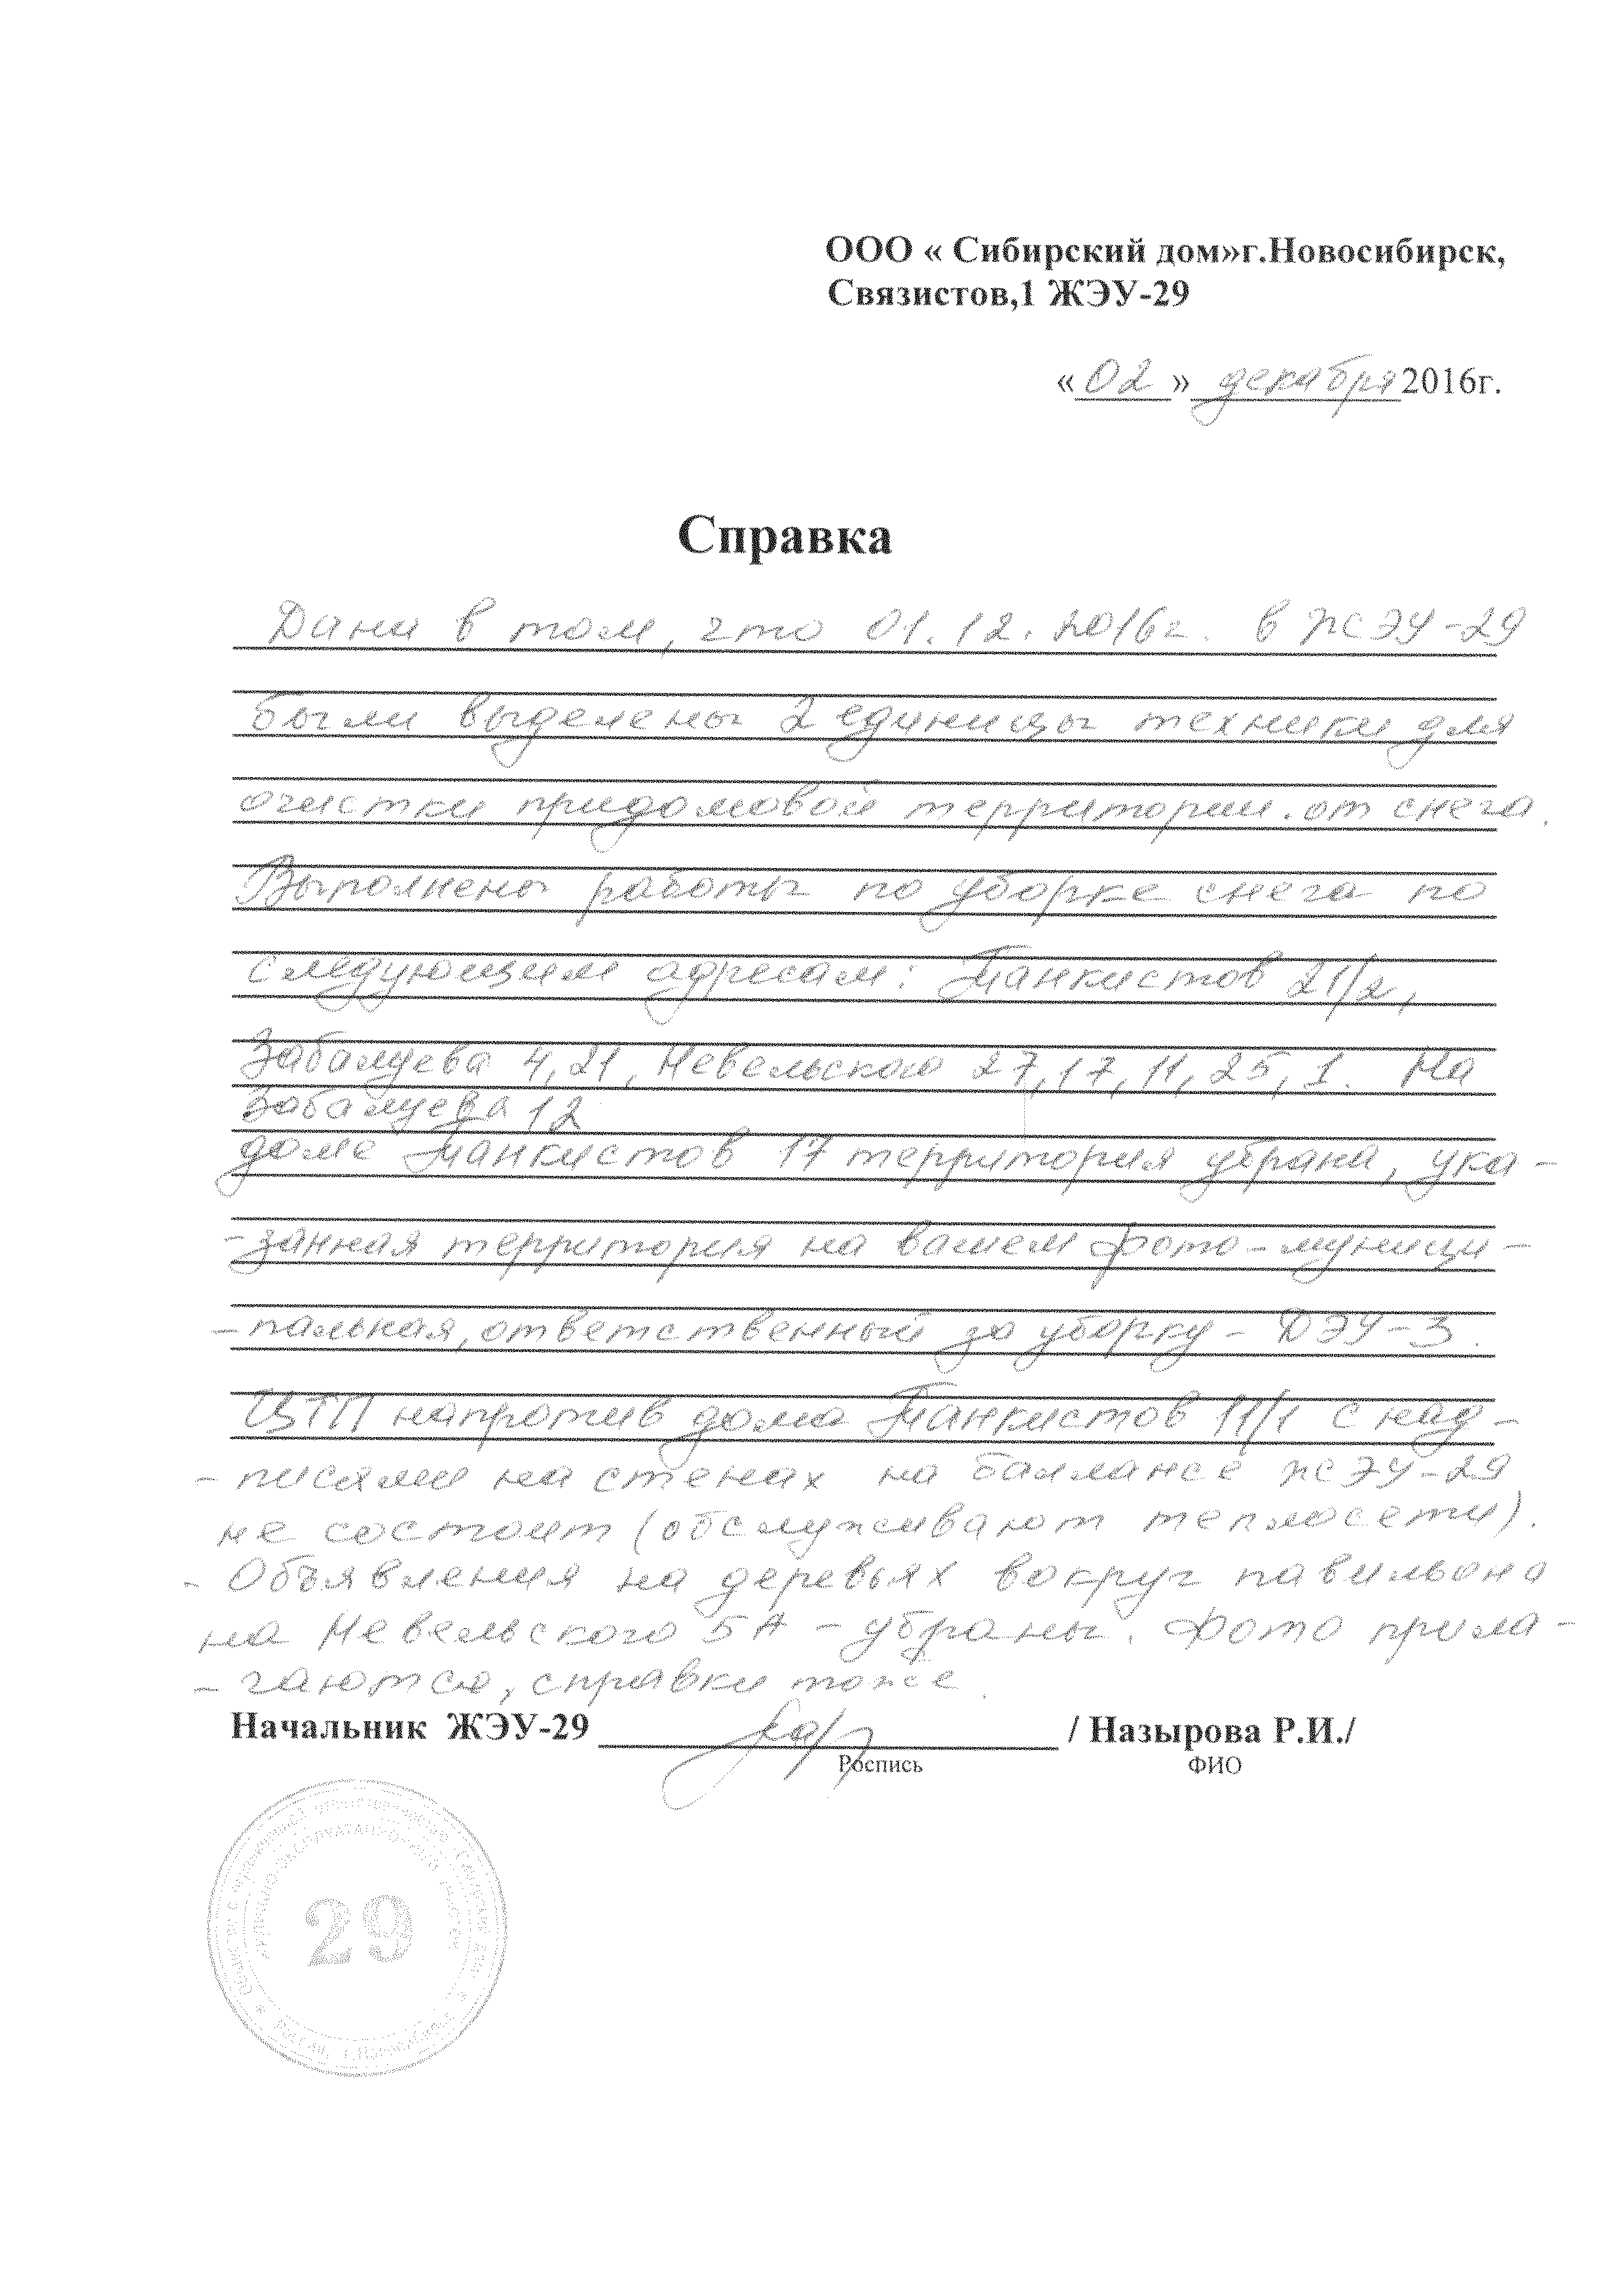 ООО « Сибирский дом»г.Новосибирск,
Связистов,1 ЖЭУ-29
«02» декабря2016г.
Справка
Дана в том, что 01.12.2016г. в ЖЭУ-29
были выделены 2 единицы техники для
очистки придомовой территории. от снега.
Выполнены работы по уборке снега по
следующим адресам: Танкистов 21/2,
Забалуева 4,21, Невельского 27,17,11,25,1. На
Забалуева 12
доме Танкистов 17 территория убрана, ука-
-занная территория на вашем фото-муници-
-пальная, ответственный за уборку - ДЭУ-3.
ЦТП напротив дома Танкистов 11/1 с над-
-писями на стенах на баллансе ЖЭУ-29
не состоит (обслуживают теплосети).
- Объявления на деревьях вокруг павильона
на Невельского 5А - убраны. Фото прила-
- гаются, справки тоже.
Начальник ЖЭУ-29 / Назырова Р.И./
Роспись ФИО
29
Россия, г.Новосибирск